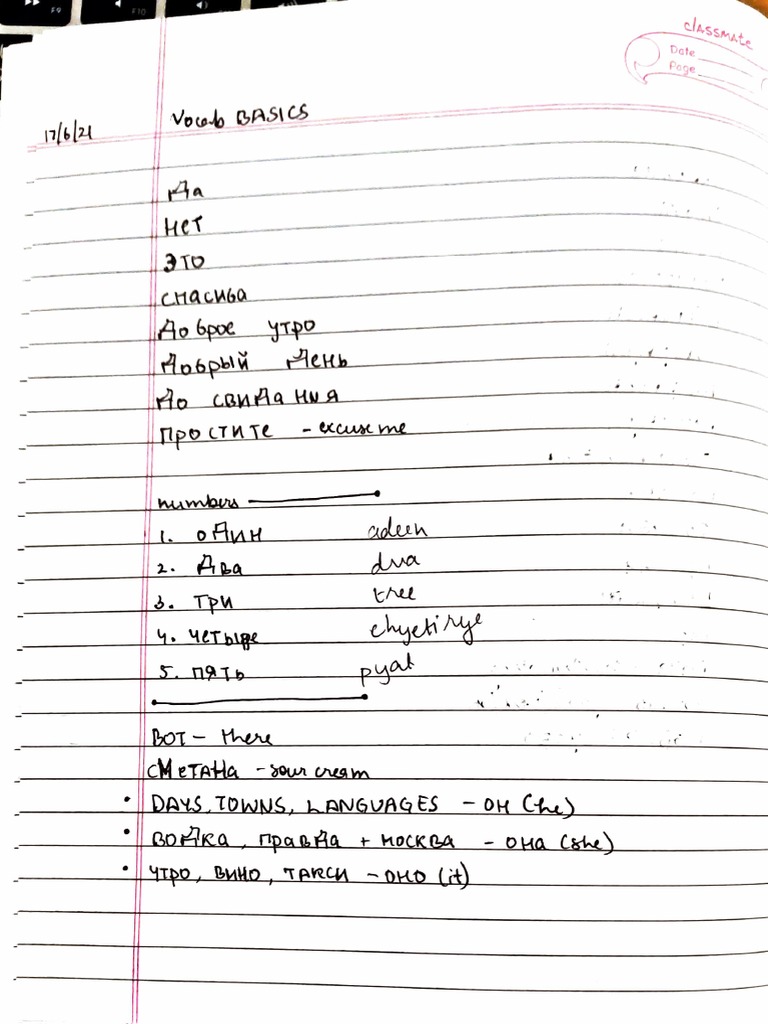 F9
F10
classmate
Date
Page
17/6/21
Vocab BASICS
Да
Нет
Это
спасиба
Доброе утро
Добрый День
До свиДания
Простите - excuse me
numbers
1. оДин adeen
2. Два dva
3. три tree
4. четыре chyetirye
5. пять pyat
вот - there
сМетаНа - sour cream
• DAYS, TOWNS, LANGUAGES - ОН (he)
• ВОДКА, ПРАВДА + МОСКВА - ОНА (she)
• УТРО, ВИНО, ТАКСИ - ОНО (it)